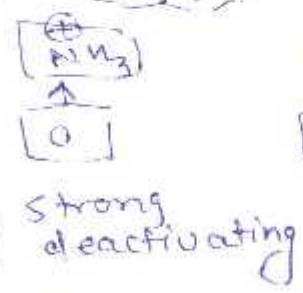 ⊕
NH3
O
strong
deactivating